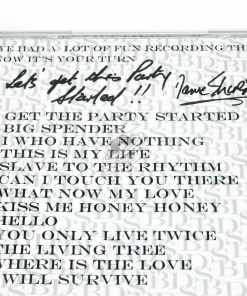 WE HAD A LOT OF FUN RECORDING TH
NOW IT'S YOUR TURN
Let's get this Party
Started!!
GET THE PARTY STARTED
BIG SPENDER
I WHO HAVE NOTHING
THIS IS MY LIFE
SLAVE TO THE RHYTHM
CAN I TOUCH YOU THERE
WHAT NOW MY LOVE
KISS ME HONEY HONEY
HELLO
YOU ONLY LIVE TWICE
THE LIVING TREE
WHERE IS THE LOVE
I WILL SURVIVE